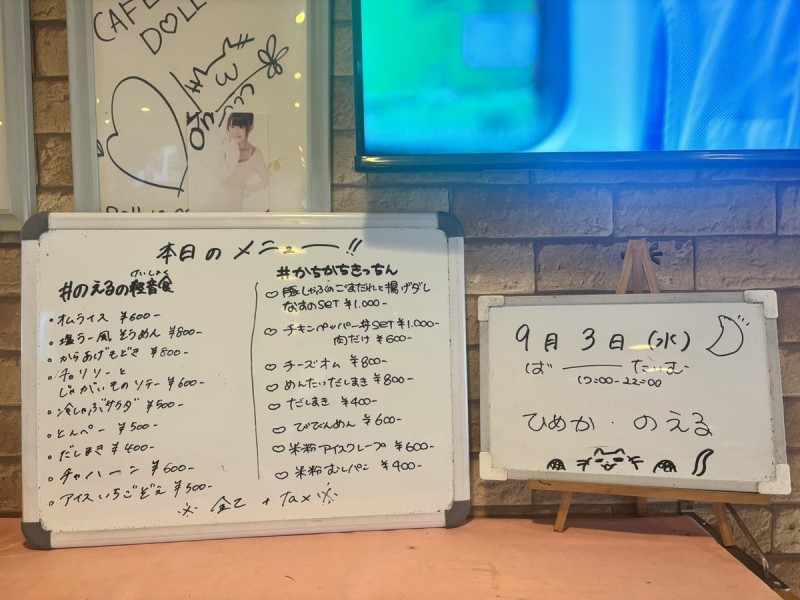 CAFE
DOLL
本日のメニュー!!
#のえるの軽音食
けいしょく
・オムライス ¥600-
・塩ラー風そうめん ¥800-
・からあげもどき ¥800-
・チョリソーと
じゃがいものソテー ¥600-
・冷しゃぶサラダ ¥500-
・とんペー ¥500-
・だしまき ¥400-
・チャーハン ¥600-
・アイスいちごぞえ ¥500-
#かちかちきっちん
♡ 豚しゃぶのごまだれと揚げダし
なすのSET ¥1.000-
♡ チキンペッパー丼SET ¥1.000-
肉だけ ¥600-
♡ チーズオム ¥800-
♡ めんたいだしまき ¥800-
♡ だしまき ¥400-
♡ びびんめん ¥600-
♡ 米粉アイスクレープ ¥600-
♡ 米粉むしパン ¥400-
※ 全て + tax ※
9月3日(水)
ば──たいむ
17:00-22:00
ひめか・のえる